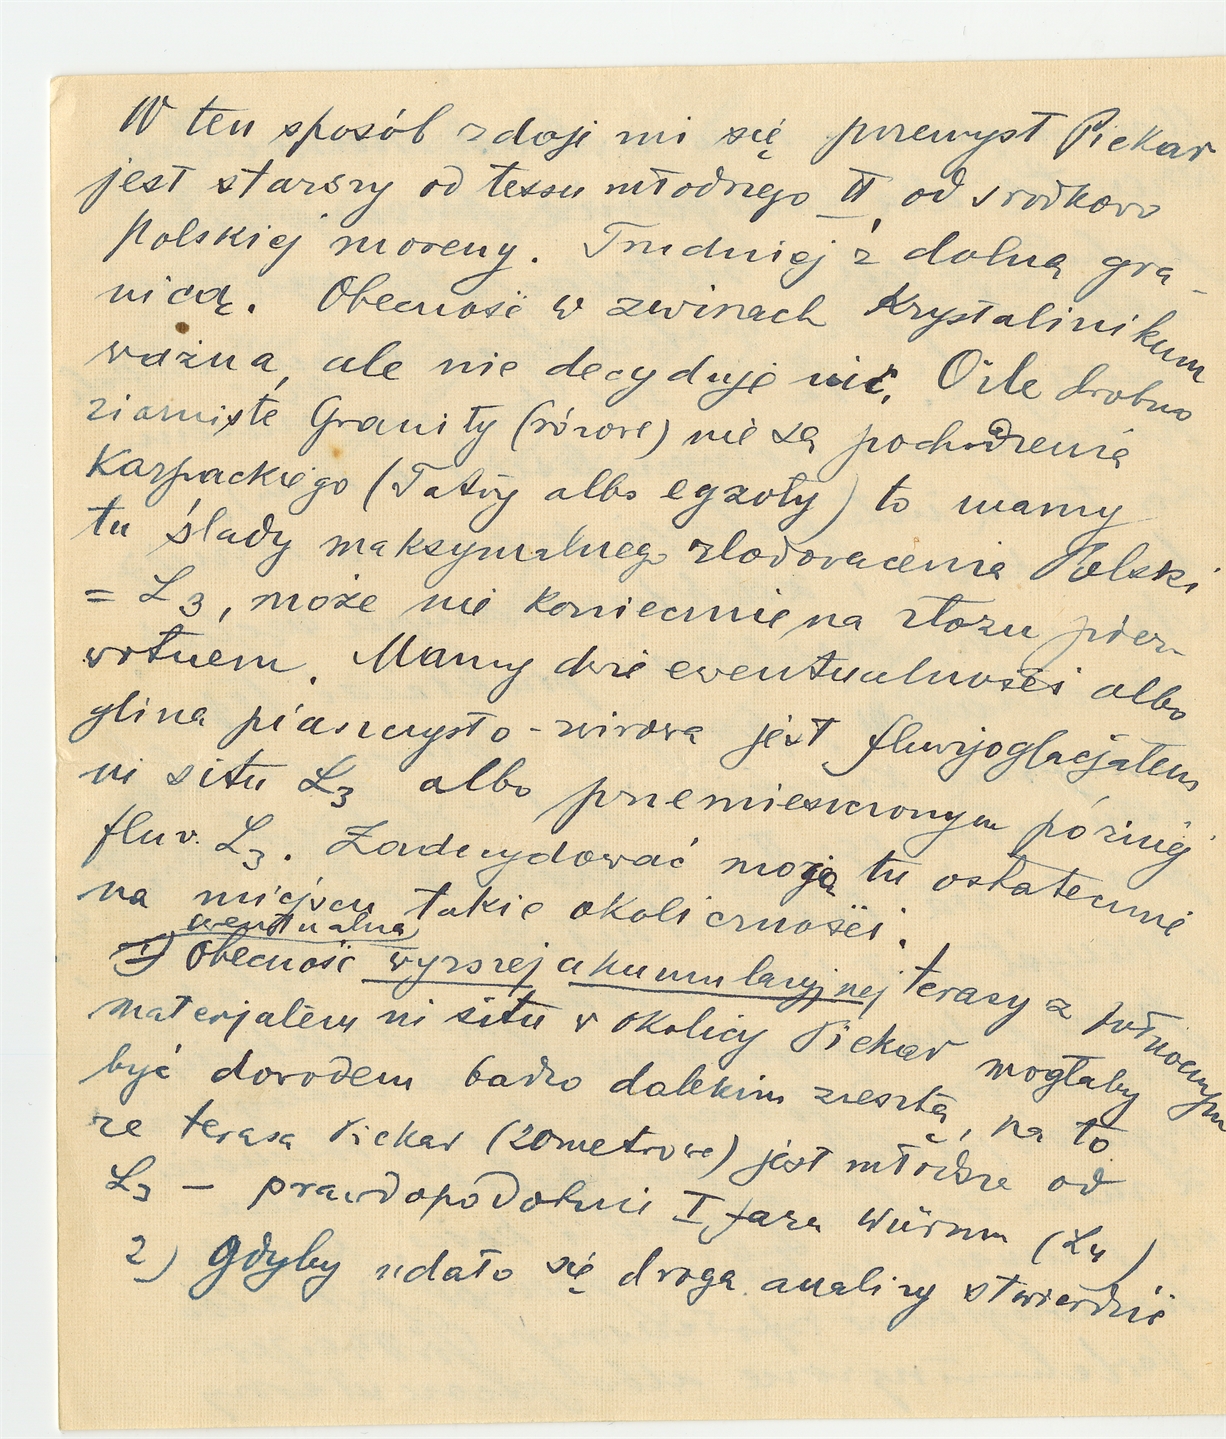 W ten sposób zdaje mi się przemysł Piekar
jest starszy od lessu młodszego II, od środkowo
polskiej moreny. Trudniej z dolną gra-
nicą. Obecność w żwirach Krystalinikum
ważna, ale nie decyduje nic. O ile drobno
ziarniste Granity (różowe) nie są pochodzenia
Karpackiego (Tatry albo egzoty) to mamy
tu ślady maksymalnego zlodowacenia Polski
= L3, może nie koniecznie na złożu pier-
wotnem. Mamy dwie ewentualności albo
glina piaszczysto-żwirowa jest fluwjoglacjałem
in situ L3 albo przemieszczonym później
fluv. L3. Zadecydować mogą tu ostatecznie
na miejscu takie okoliczności.
ewentualna
1) Obecność wyższej akumulacyjnej terasy z północnym
materjałem in situ w okolicy Piekar mogłaby
być dowodem bardzo dalekim zresztą, na to
że terasa Piekar (20metrowa) jest młodsza od
L3 – prawdopodobnie I faza Würmu (L4)
2) Gdyby udało się drogą analizy stwierdzić